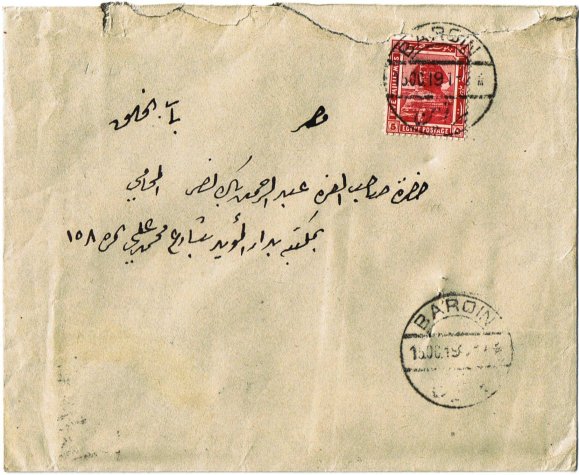 BAROIN
15.OC.19
5 EGYPT POSTAGE
مصر باب الخلق
حضرة صاحب العزة عبد الرحمن بك نصر المحامي
بمكتبه بدار المؤيد بشارع محمد علي نمرة ١٥٨
BAROIN
15.OC.19